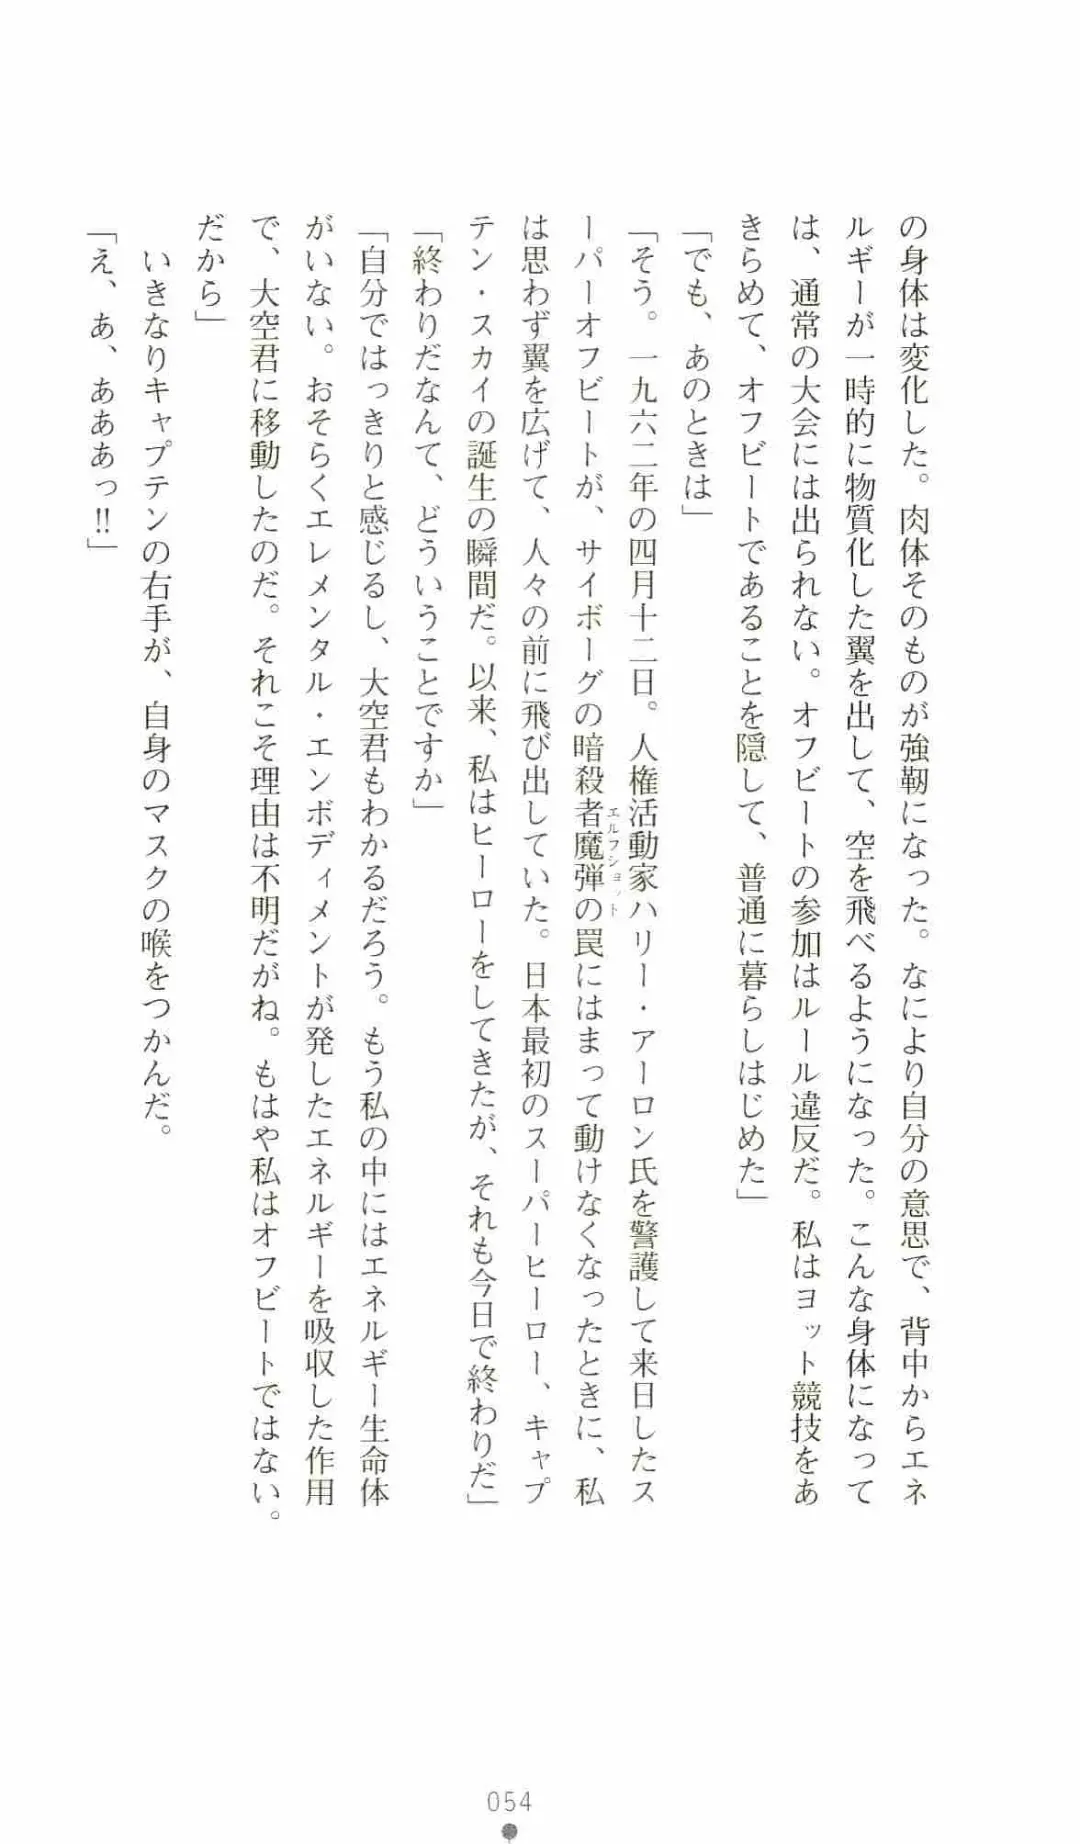 の身体は変化した。肉体そのものが強靭になった。なにより自分の意思で、背中からエネ
ルギーが一時的に物質化した翼を出して、空を飛べるようになった。こんな身体になって
は、通常の大会には出られない。オフビートの参加はルール違反だ。私はヨット競技をあ
きらめて、オフビートであることを隠して、普通に暮らしはじめた」
「でも、あのときは」
「そう。一九六二年の四月十二日。人権活動家ハリー・アーロン氏を警護して来日したス
ーパーオフビートが、サイボーグの暗殺者魔弾の罠にはまって動けなくなったときに、私
エルフショット
は思わず翼を広げて、人々の前に飛び出していた。日本最初のスーパーヒーロー、キャプ
テン・スカイの誕生の瞬間だ。以来、私はヒーローをしてきたが、それも今日で終わりだ」
「終わりだなんて、どういうことですか」
「自分ではっきりと感じるし、大空君もわかるだろう。もう私の中にはエネルギー生命体
がいない。おそらくエレメンタル・エンボディメントが発したエネルギーを吸収した作用
で、大空君に移動したのだ。それこそ理由は不明だがね。もはや私はオフビートではない。
だから」
いきなりキャプテンの右手が、自身のマスクの喉をつかんだ。
「え、あ、あああっ!!」
054